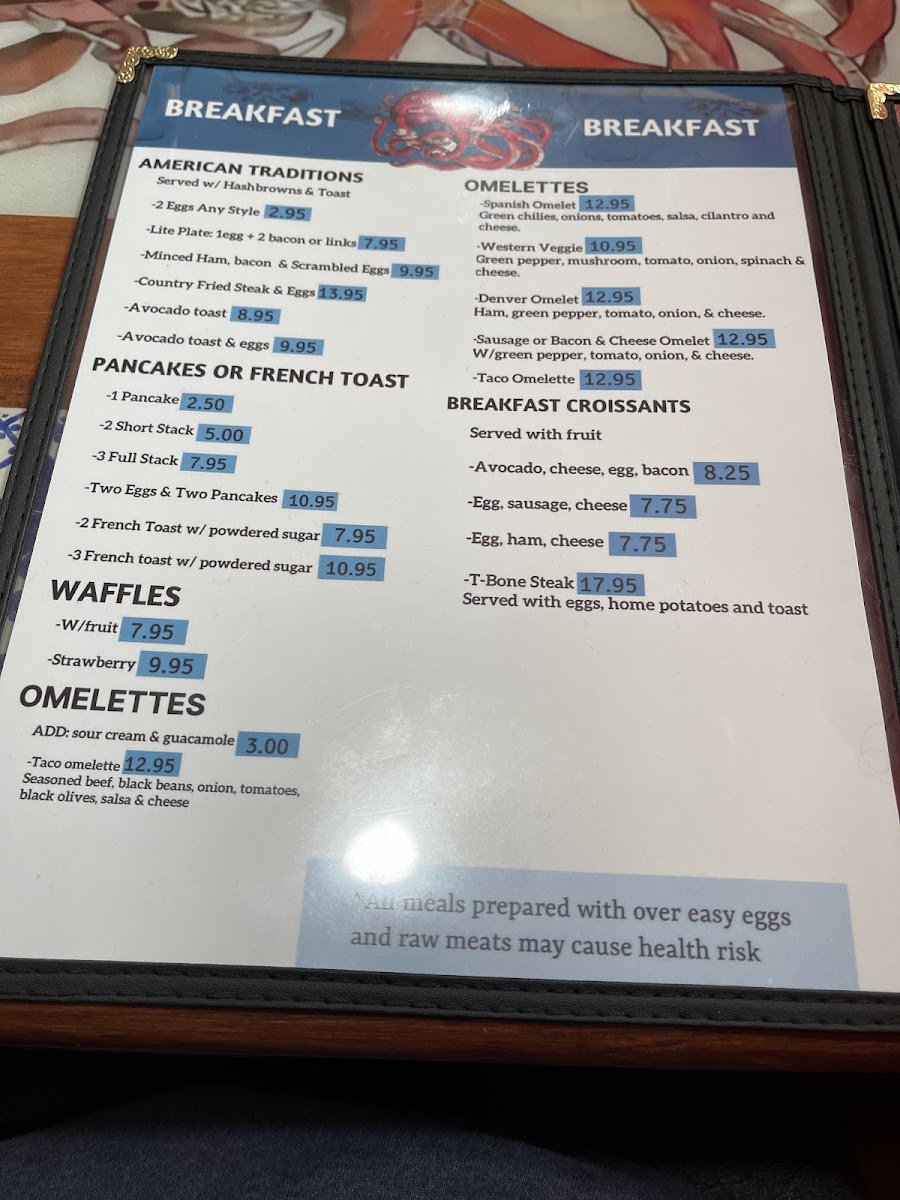 BREAKFAST
BREAKFAST
AMERICAN TRADITIONS
Served w/ Hashbrowns & Toast
-2 Eggs Any Style 2.95
-Lite Plate: 1egg + 2 bacon or links 7.95
-Minced Ham, bacon & Scrambled Eggs 9.95
-Country Fried Steak & Eggs 13.95
-Avocado toast 8.95
-Avocado toast & eggs 9.95
PANCAKES OR FRENCH TOAST
-1 Pancake 2.50
-2 Short Stack 5.00
-3 Full Stack 7.95
-Two Eggs & Two Pancakes 10.95
-2 French Toast w/ powdered sugar 7.95
-3 French toast w/ powdered sugar 10.95
WAFFLES
-W/fruit 7.95
-Strawberry 9.95
OMELETTES
ADD: sour cream & guacamole 3.00
-Taco omelette 12.95
Seasoned beef, black beans, onion, tomatoes,
black olives, salsa & cheese
OMELETTES
-Spanish Omelet 12.95
Green chilies, onions, tomatoes, salsa, cilantro and
cheese.
-Western Veggie 10.95
Green pepper, mushroom, tomato, onion, spinach &
cheese.
-Denver Omelet 12.95
Ham, green pepper, tomato, onion, & cheese.
-Sausage or Bacon & Cheese Omelet 12.95
W/green pepper, tomato, onion, & cheese.
-Taco Omelette 12.95
BREAKFAST CROISSANTS
Served with fruit
-Avocado, cheese, egg, bacon 8.25
-Egg, sausage, cheese 7.75
-Egg, ham, cheese 7.75
-T-Bone Steak 17.95
Served with eggs, home potatoes and toast
*All meals prepared with over easy eggs
and raw meats may cause health risk